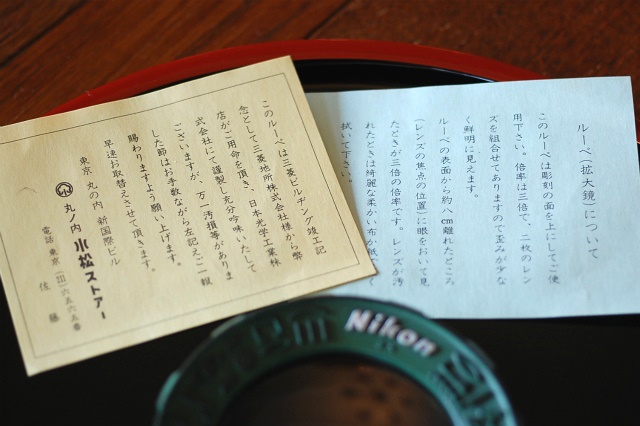 ルーペ(拡大鏡)について
このルーペは彫刻の面を上にしてご使
用下さい。倍率は三倍で、二枚のレン
ズを組合せてありますので歪みが少な
く鮮明に見えます。
ルーペの表面から約八cm離れたところ
(レンズの焦点の位置)に眼をおいて見
たときが三倍の倍率です。レンズが汚
れたときは綺麗な柔かい布か
拭いて下さい。
このルーペは三菱ビルヂング竣工記
念として三菱地所株式会社様から弊
店がご用命を頂き、日本光学工業株
式会社にて謹製し充分吟味いたして
ございますが、万一汚損等がありま
した節はお手数ながら左記えご一報
賜わりますよう願い上げます。
早速お取替えさせて頂きます。
東京 丸の内 新国際ビル
丸ノ内 小松ストアー
電話 東京 六五六五番
佐藤
Nikon